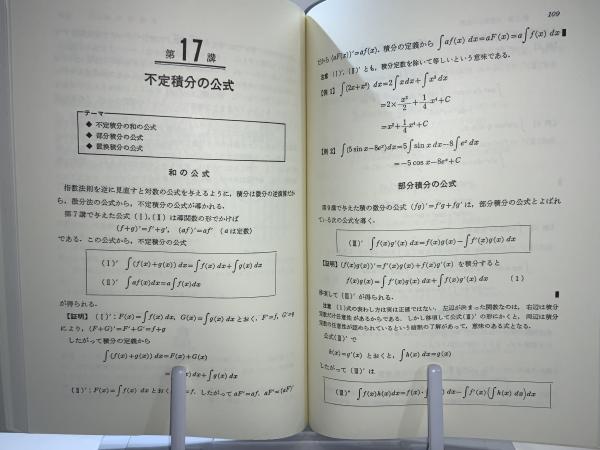 第17講
不定積分の公式
テーマ
◆ 不定積分の和の公式
◆ 部分積分の公式
◆ 置換積分の公式
和の公式
指数法則を逆に見直すと対数の公式を与えるように，積分は微分の逆演算だか
ら，微分法の公式から，不定積分の公式が導かれる．
第7講で与えた公式 (Ⅰ), (Ⅱ) は導関数の形でかけば
(f+g)'=f'+g', (af)'=af' (a は定数)
である．この公式から，不定積分の公式
(Ⅰ)' ∫(f(x)+g(x)) dx=∫f(x) dx+∫g(x) dx
(Ⅱ)' ∫af(x)dx=a∫f(x)dx
が得られる．
【証明】 (Ⅰ)': F(x)=∫f(x) dx, G(x)=∫g(x) dx とおく，F'=f, G'=g
により，(F+G)'=F'+G'=f+g
したがって積分の定義から
∫(f(x)+g(x)) dx=F(x)+G(x)
=∫f(x) dx+∫g(x) dx
(Ⅱ)': F(x)=∫f(x) dx とおくと，F'=f．したがって aF'=af. aF'=(aF)'
109
だから (aF(x))'=af(x). 積分の定義から ∫af(x) dx=aF(x)=a∫f(x) dx
注意 (Ⅰ)', (Ⅱ)' とも，積分定数を除いて等しいという意味である．
【例1】 ∫(2x+x³) dx=2∫x dx+∫x³ dx
=2×x²/2+1/4 x⁴+C
=x²+1/4 x⁴+C
【例2】 ∫(5 sin x−8eˣ)dx=5∫sin x dx−8∫eˣ dx
=−5 cos x−8eˣ+C
部分積分の公式
第9講で与えた積の微分の公式 (fg)'=f'g+fg' は，部分積分の公式とよばれ
ている次の公式を導く．
(Ⅲ)' ∫f(x)g'(x) dx=f(x)g(x)−∫f'(x)g(x) dx
【証明】 (f(x)g(x))'=f'(x)g(x)+f(x)g'(x) を積分すると
f(x)g(x)=∫f'(x)g(x) dx+∫f(x)g'(x) dx (1)
移項して (Ⅲ)' が得られる．
注意 (1)式の表わし方は実は正確ではない．左辺が決まった関数なのは，右辺は積分
定数だけ任意性があるからである．しかし移項して公式(Ⅲ)' の形にかくと，両辺は積分
定数の任意性が認められているという暗黙の了解があって，意味のある式となる．
公式(Ⅲ)' で
h(x)=g'(x) とおくと，∫h(x) dx=g(x)
したがって (Ⅲ)' は
(Ⅲ)'' ∫f(x)h(x)dx=f(x)·∫h(x) dx−∫f'(x)(∫h(x) dx)dx